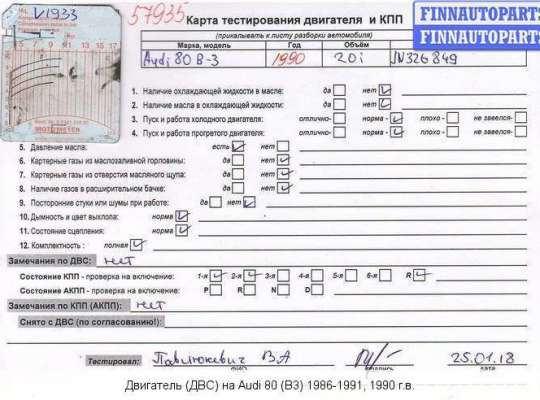 V1933
57935
Карта тестирования двигателя и КПП
FINNAUTOPARTS
FINNAUTOPARTS
(прикалывать к листу разборки автомобиля)
Марка, модель Год Объём
Audi 80 B-3 1990 2.0i JN326849
5 7 9 11 13 15 17
MOTOMETER
1. Наличие охлаждающей жидкости в масле: да нет
2. Наличие масла в охлаждающей жидкости: да нет
3. Пуск и работа холодного двигателя: отлично- норма - плохо - не завелся-
4. Пуск и работа прогретого двигателя: отлично- норма - плохо - не завелся-
5. Давление масла: есть нет
6. Картерные газы из маслозаливной горловины: да нет
7. Картерные газы из отверстия масляного щупа: да нет
8. Наличие газов в расширительном бачке: да нет
9. Посторонние стуки или шумы при работе: да нет
10. Дымность и цвет выхлопа: норма
11. Состояние сцепления: норма
12. Комплектность : полная
Замечания по ДВС: нет
Состояние КПП - проверка на включение: 1-я 2-я 3-я 4-я 5-я 6-я R
Состояние АКПП - проверка на включение: P R N D
Замечания по КПП (АКПП): нет
Снято с ДВС (по согласованию!):
Тестировал: Павлюкевич В А 25.01.18
ФИО подпись дата
Двигатель (ДВС) на Audi 80 (B3) 1986-1991, 1990 г.в.